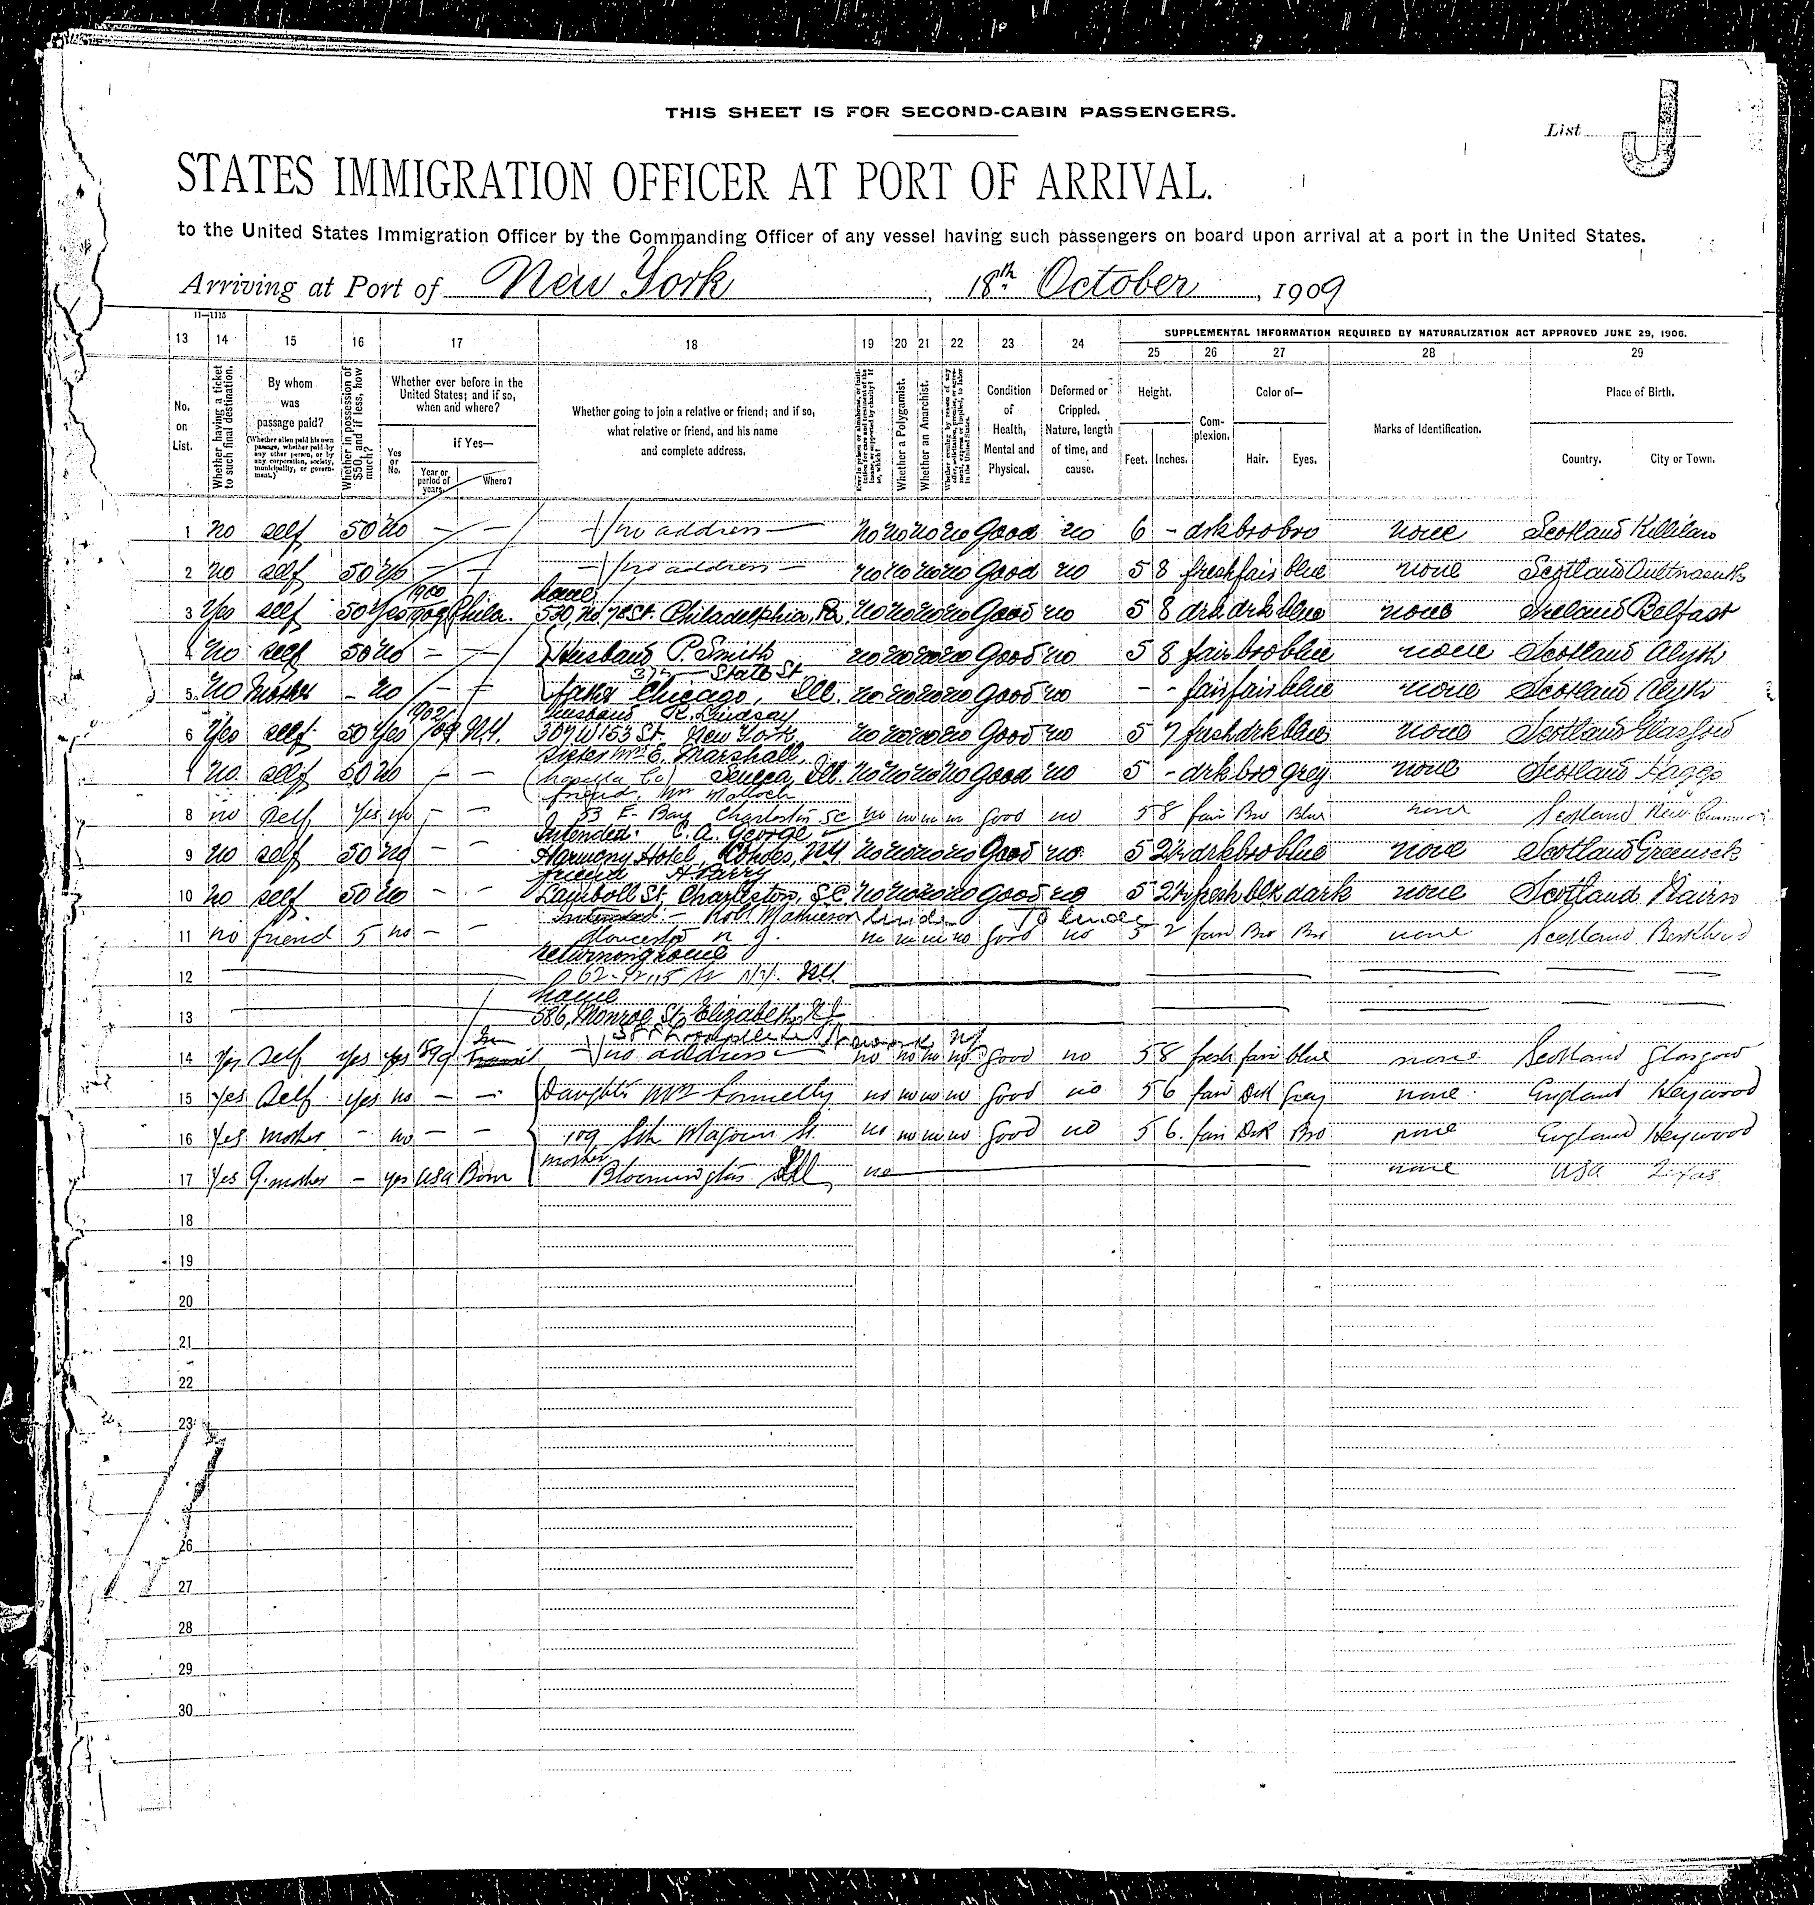 THIS SHEET IS FOR SECOND-CABIN PASSENGERS.
List J
STATES IMMIGRATION OFFICER AT PORT OF ARRIVAL.
to the United States Immigration Officer by the Commanding Officer of any vessel having such passengers on board upon arrival at a port in the United States.
Arriving at Port of New York, 18th October, 1909
11—1115
SUPPLEMENTAL INFORMATION REQUIRED BY NATURALIZATION ACT APPROVED JUNE 29, 1906.
13 14 15 16 17 18 19 20 21 22 23 24 25 26 27 28 29
No. on List.
Whether having a ticket to such final destination.
By whom was passage paid?
(Whether alien paid his own passage, whether paid by any other person, or by any corporation, society, municipality, or government.)
Whether in possession of $50, and if less, how much?
Whether ever before in the United States; and if so, when and where?
Yes or No.
If Yes—
Year or period of years.
Where?
Whether going to join a relative or friend; and if so, what relative or friend, and his name and complete address.
Whether a Polygamist.
Whether an Anarchist.
Condition of Health, Mental and Physical.
Deformed or Crippled. Nature, length of time, and cause.
Height.
Feet. Inches.
Complexion.
Color of—
Hair. Eyes.
Marks of Identification.
Place of Birth.
Country. City or Town.
1 no self 50 no — — no address — no no no no Good no 6 - drk bro bro none Scotland Killilan
2 no self 50 no — — no address — no no no no Good no 5 8 fresh fair blue none Scotland
1900 home
3 Yes self 50 Yes 1909 Phila. 530, no. 7 St. Philadelphia, Pa. no no no no Good no 5 8 drk drk blue none Ireland Belfast
4 no self 50 no — — Husband P. Smith no no no no Good no 5 8 fair bro blue none Scotland Alyth
State St
5 no Mother - no — — father Chicago, Ill. no no no no Good no - - fair fair blue none Scotland Alyth
1902 Husband R. Lindsay
6 Yes self 50 Yes /09 N.Y. 307 W 153 St. New York no no no no Good no 5 7 fresh drk blue none Scotland Glasford
Sister Mrs E. Marshall,
7 no self 50 no — — Seneca, Ill. no no no no Good no 5 - drk bro grey none Scotland Haggs
friend, Wm Molloch
8 no Self Yes no — — 53 E. Bay Charleston SC no no no no Good no 5 8 fair Bro Blue none Scotland New
Intended: C. A. George
9 no self 50 no — — Harmony Hotel, Cohoes, NY no no no no Good no 5 2½ drk bro blue none Scotland Greenock
friend A Barry
10 no self 50 no — — Lamboll St, Charleston, S.C. no no no no Good no 5 2½ fresh blk dark none Scotland Nairn
Intended - Robt Mathieson
11 no friend 5 no — — Gloucester n J. no no no no Good no 5 2 fair Bro Bro none Scotland
returning home
12 62 W 115 St N.Y. NY.
home
13 586, Monroe St, Elizabeth, N.J.
In
14 Yes Self Yes yes 1909 Transit no address — no no no no Good no 5 8 fresh fair blue none Scotland Glasgow
15 Yes Self Yes no — — Daughter Mrs Connelly no no no no Good no 5 6 fair Drk Grey none England Heywood
16 Yes mother - no — — 109 Sth Magoun St. no no no no Good no 5 6 fair Drk Bro none England Heywood
mother
17 Yes G. mother - yes USA Born Bloomington Ill no none USA
18
19
20
21
22
23
26
27
28
29
30